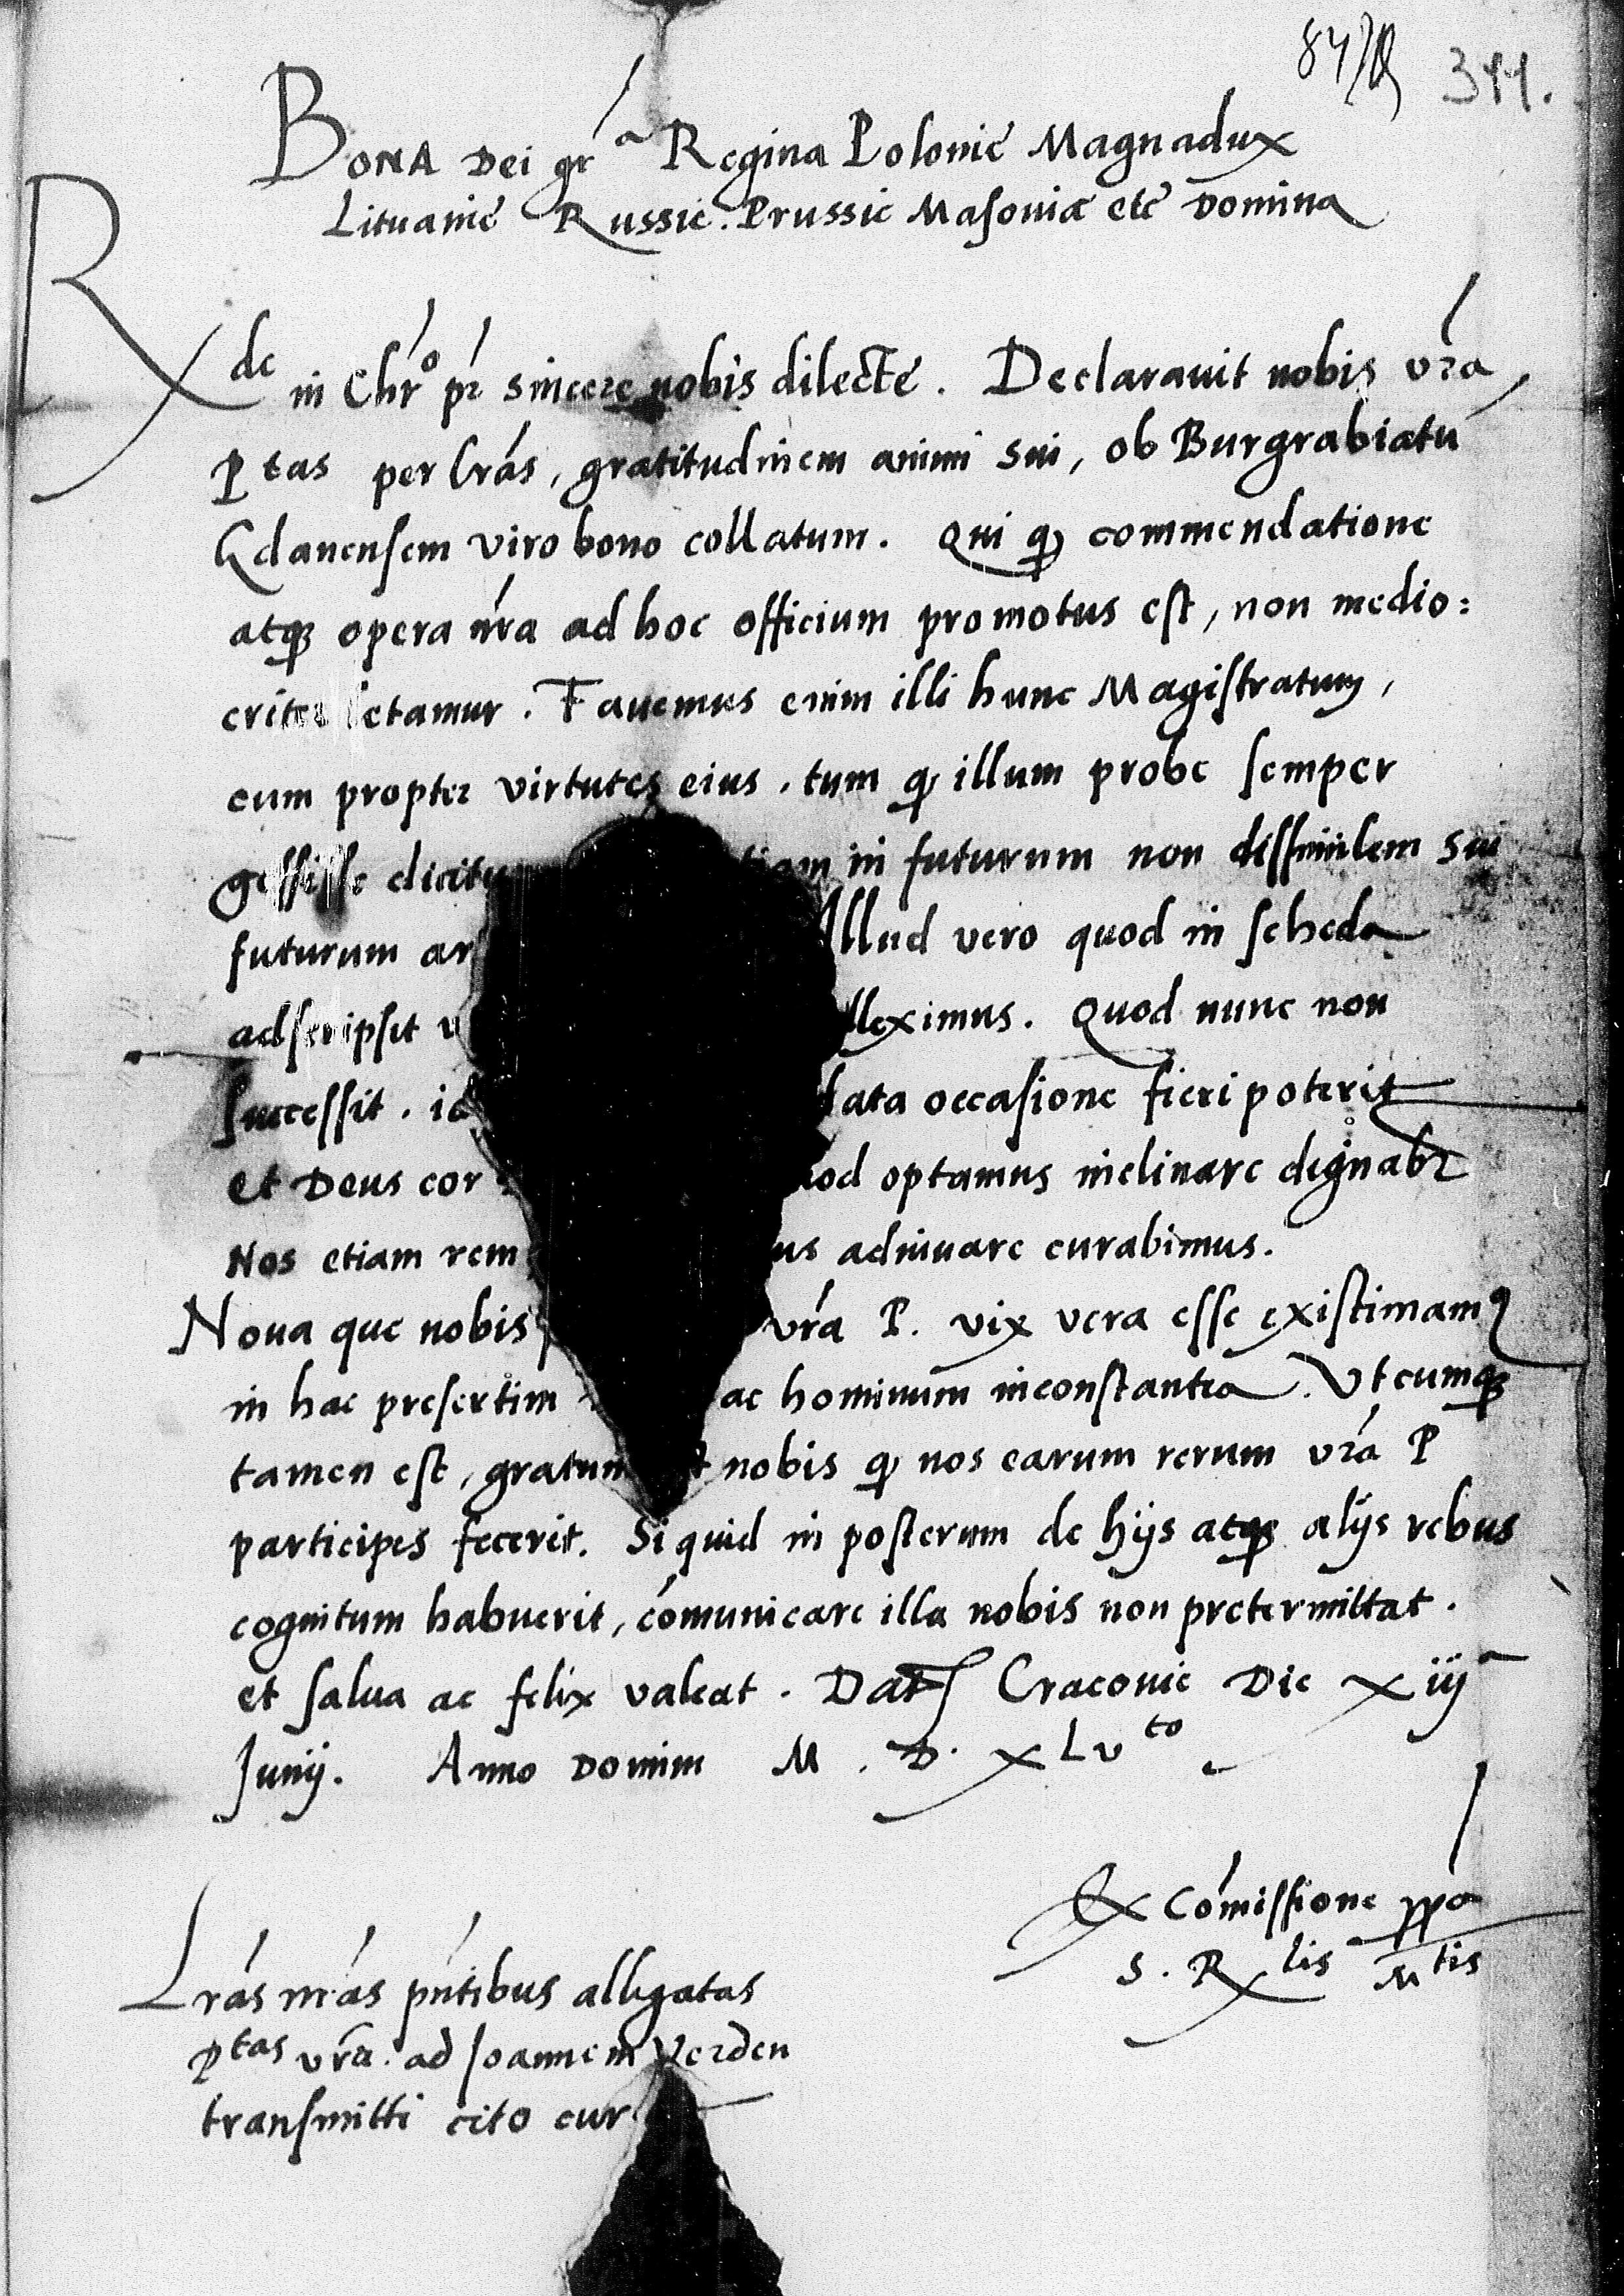 344.
BONA Dei grã Regina Polonie Magnadux
Lituanie Russie. Prussie Masovie etc Domina
Rde in Chro pr sincere nobis dilecte. Declaravit nobis vra
Ptas per lras, gratitudinem animi sui, ob Burgrabiatu
Gdanensem viro bono collatum. Qui q commendatione
atq opera nra ad hoc officium promotus est, non medio:
criter letamur. Favemus enim illi hunc Magistratum,
cum propter virtutes eius. tum q illum probe semper
gessisse dicitu in futurum non dissimilem sui
futurum ar Illud vero quod in scheda
adscripsit v lleximus. Quod nunc non
successit. id data occasione fieri poterit
et Deus cor uod optamus inclinare dignabr
Nos etiam rem us adiuvare curabimus.
Nova que nobis vra P. vix vera esse existimam9
in hac presertim ac hominum inconstantia. Utcumq
tamen est, gratum st nobis q nos earum rerum vra P
participes fecerit. Si quid in posterum de hijs atq alijs rebus
cognitum habuerit, comunicare illa nobis non pretermittat.
et salva ac felix valeat. Dat Cracovie Die xiij
Junij. Anno Domini M. D. xLvto
Ex Comissione ppa
S. Rlis Mtis
Lras nras pntibus alligatas
Ptas vra. ad Joannem Verden
transmitti cito cur